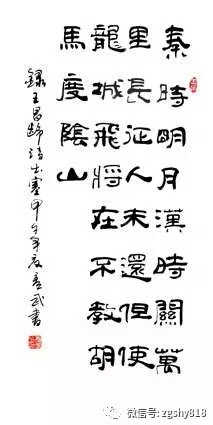 秦時明月漢時關萬
里長征人未還但使
龍城飛將在不教胡
馬度陰山
錄王昌龄詩出塞甲午年夏意武書
微信号: zgshy818